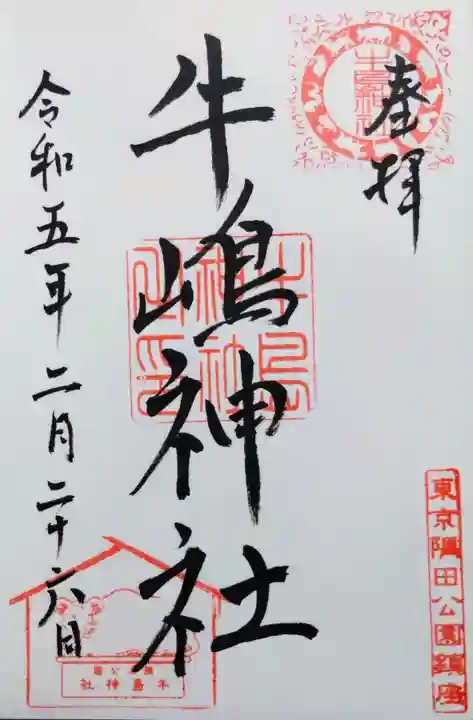 奉拝
牛嶋神社
令和五年二月二十六日
牛嶋神社
東京隅田公園鎮座
牛島神社